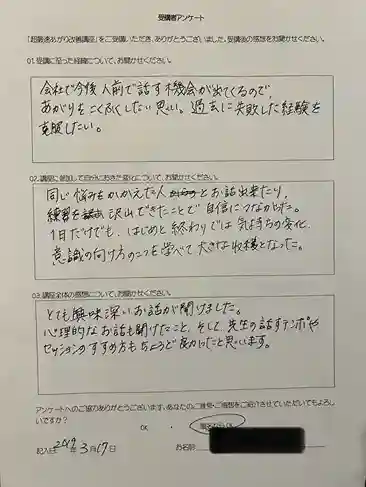 受講者アンケート
「超最速あがり改善講座」をご受講いただき、ありがとうございました。受講後の感想をお聞かせください。
01.受講に至った経緯について、お聞かせください。
会社で今後人前で話す機会が出てくるので、
あがりをこく服したい思い。過去に失敗した経験を
克服したい。
02.講座に参加して自分におきた変化について、お聞かせください。
同じ悩みをかかえた人とお話出来たり、
練習を沢山できたことで自信につながった。
1日だけでも、はじめと終わりでは気持ちの変化、
意識の向け方のコツを学べて大きな収穫となった。
03.講座全体の感想について、お聞かせください。
とても興味深いお話が聞けました。
心理的なお話も聞けたこと、そして、先生の話すテンポや
セッションのすすめ方もちょうど良かったと思います。
アンケートへのご協力ありがとうございます。あなたのご推奨・ご感想をご紹介させていただいてもよろし
いですか?
OK ・ 匿名ならOK
記入日 2019年 3月17日 お名前